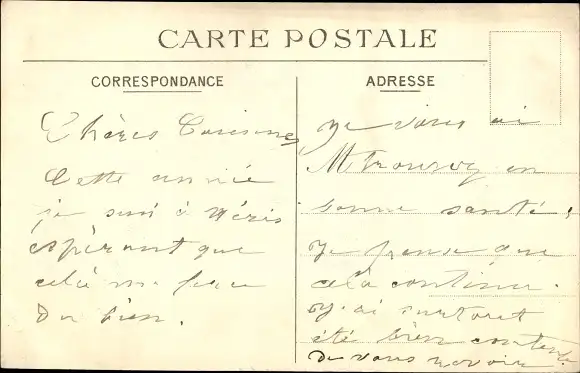 CARTE POSTALE
CORRESPONDANCE
Chères Cousines,
Cette année
je suis à Néris
espérant que
cela me fera
du bien.
ADRESSE
Je vous ai
en
bonne santé,
je pense que
cela continue.
J'ai surtout
été bien contente
de vous revoir